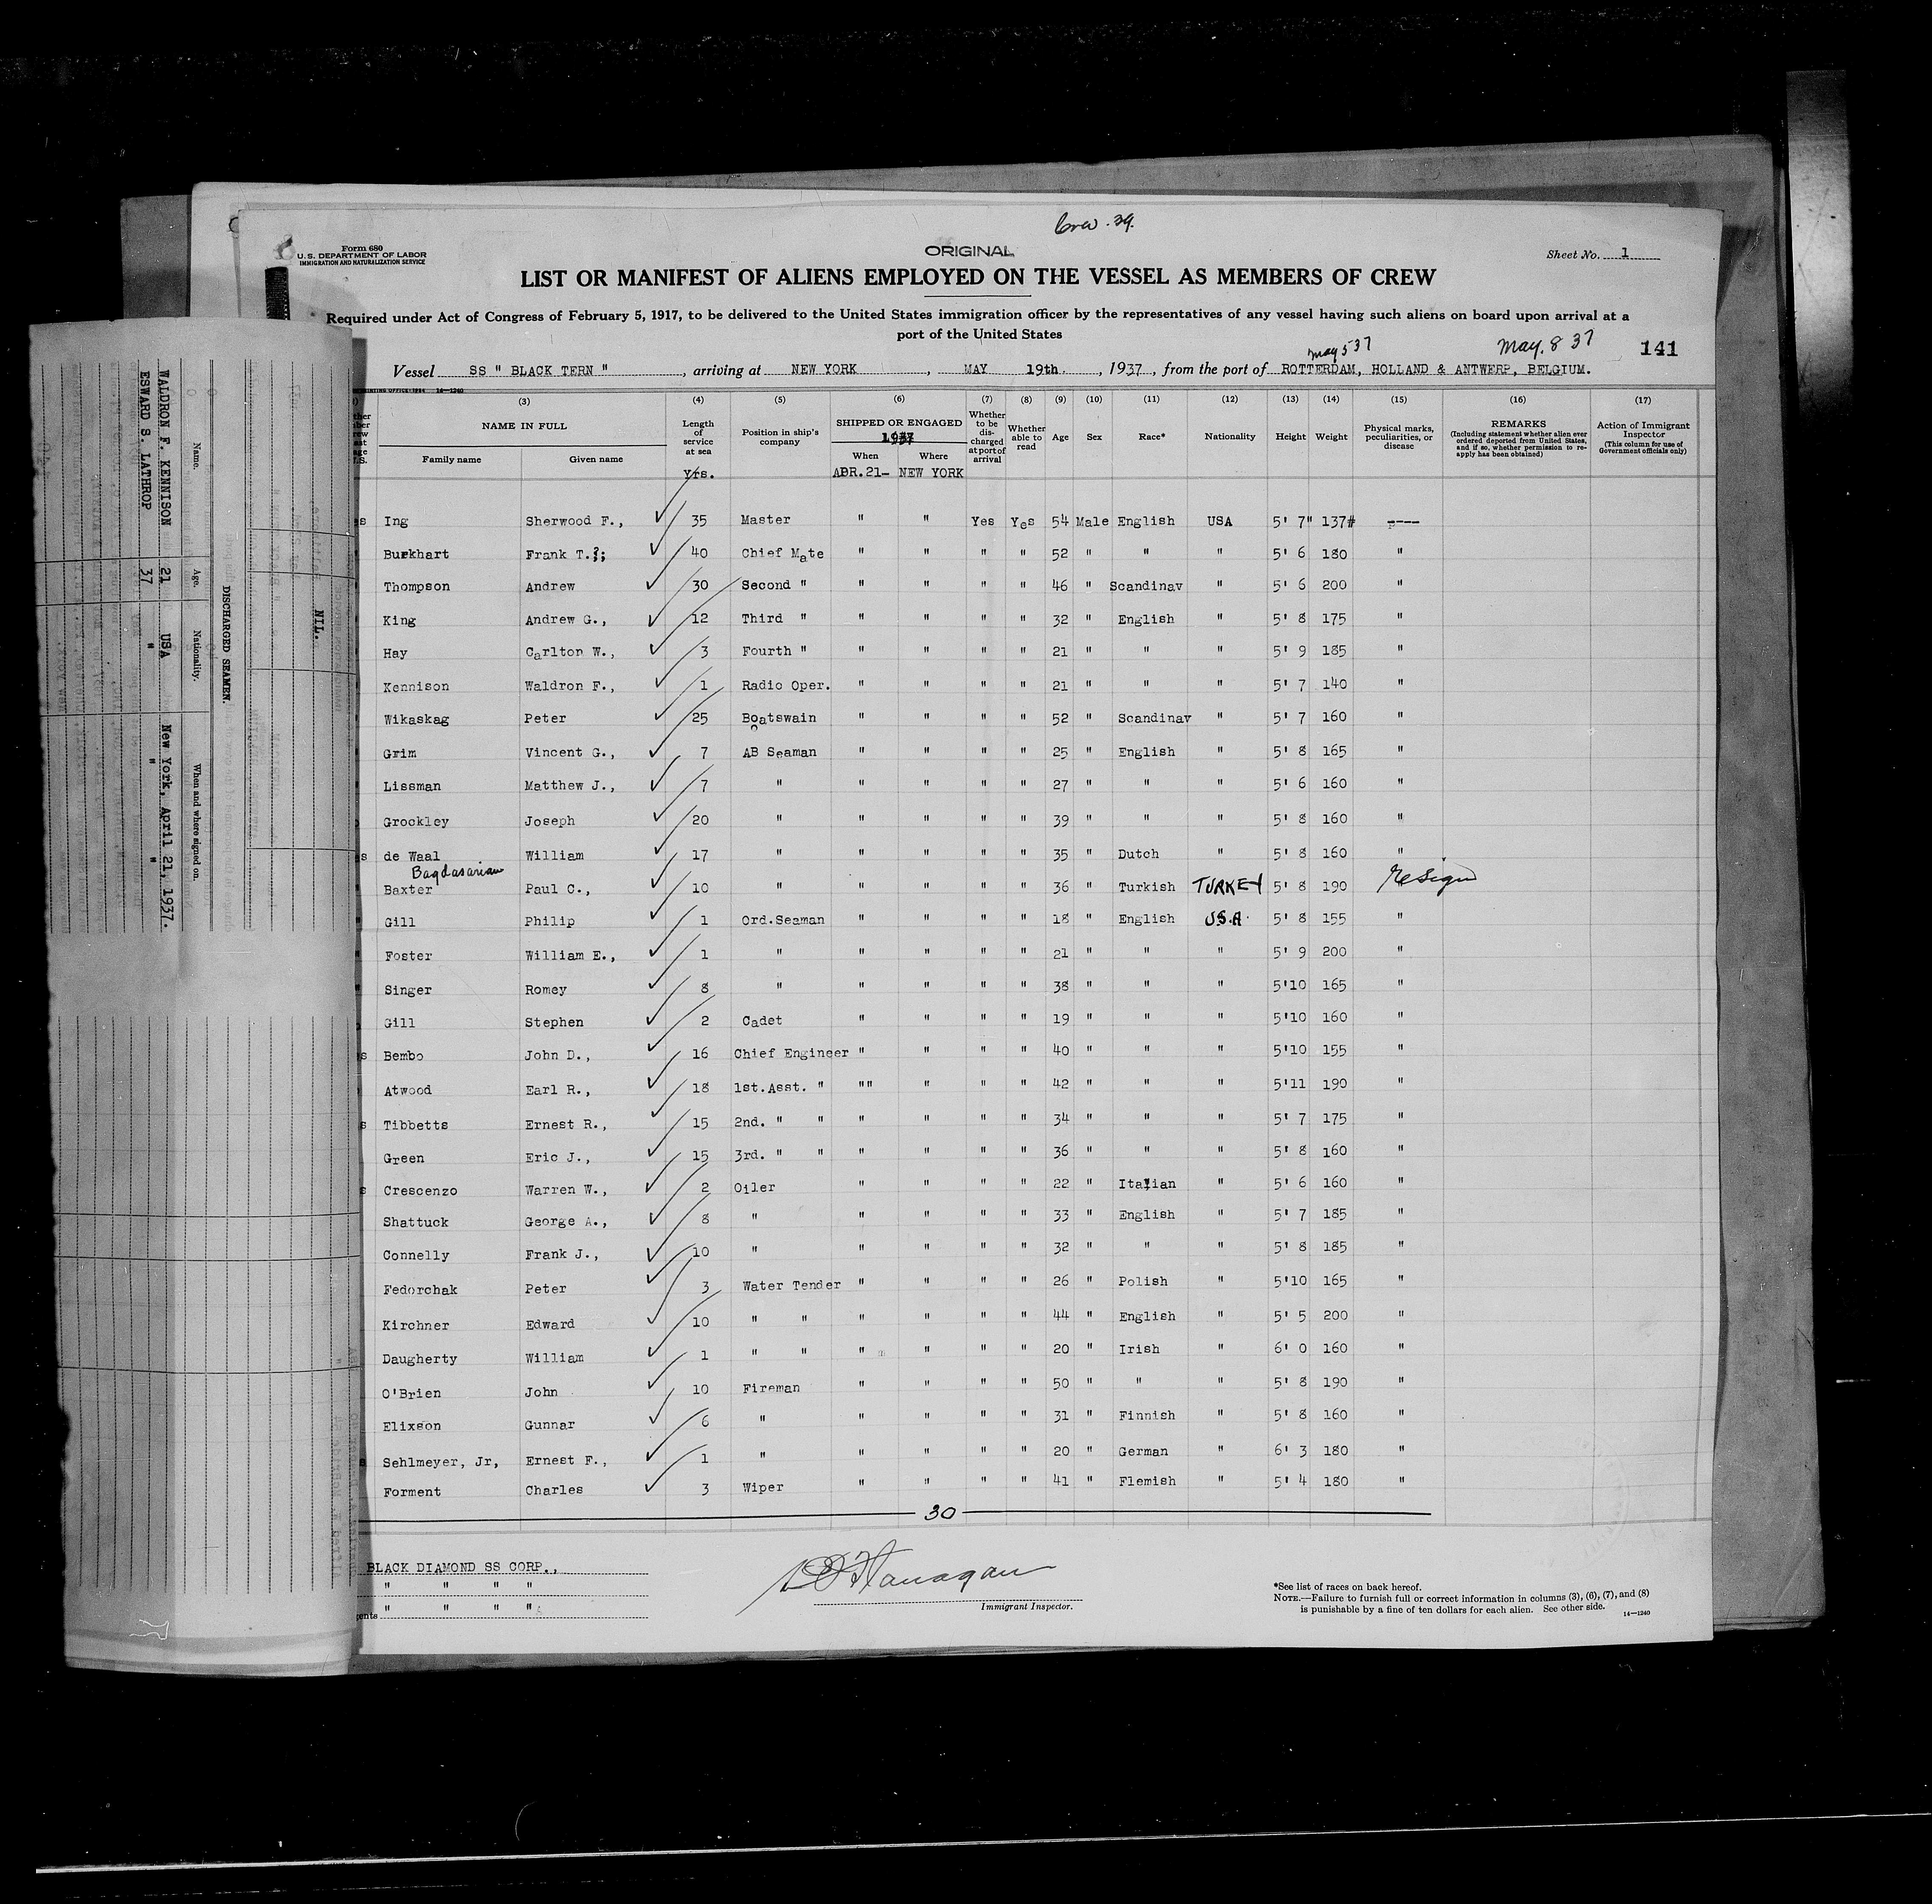 Crew. 39.
Form 680
U. S. DEPARTMENT OF LABOR
IMMIGRATION AND NATURALIZATION SERVICE
ORIGINAL
Sheet No. 1
LIST OR MANIFEST OF ALIENS EMPLOYED ON THE VESSEL AS MEMBERS OF CREW
Required under Act of Congress of February 5, 1917, to be delivered to the United States immigration officer by the representatives of any vessel having such aliens on board upon arrival at a
port of the United States
May 5 37 May. 8 37 141
Vessel SS " BLACK TERN ", arriving at NEW YORK, MAY 19th., 1937, from the port of ROTTERDAM, HOLLAND & ANTWERP, BELGIUM.
14—1240
(3) (4) (5) (6) (7) (8) (9) (10) (11) (12) (13) (14) (15) (16) (17)
NAME IN FULL
Family name Given name
Length of service at sea
Yrs.
Position in ship's company
SHIPPED OR ENGAGED
1937
When Where
APR.21- NEW YORK
Whether to be discharged at port of arrival
Whether able to read
Age
Sex
Race*
Nationality
Height
Weight
Physical marks, peculiarities, or disease
REMARKS
(Including statement whether alien ever ordered deported from United States, and if so, whether permission to reapply has been obtained)
Action of Immigrant Inspector
(This column for use of Government officials only)
Ing Sherwood F., 35 Master " " Yes Yes 54 Male English USA 5' 7" 137# ----
Burkhart Frank T. 40 Chief Mate " " " " 52 " " " 5' 6 180 "
Thompson Andrew 30 Second " " " " " 46 " Scandinav " 5' 6 200 "
King Andrew G., 12 Third " " " " " 32 " English " 5' 8 175 "
Hay Carlton W., 3 Fourth " " " " " 21 " " " 5' 9 185 "
Kennison Waldron F., 1 Radio Oper. " " " " 21 " " " 5' 7 140 "
Wikaskag Peter 25 Boatswain " " " " 52 " Scandinav " 5' 7 160 "
Grim Vincent G., 7 AB Seaman " " " " 25 " English " 5' 8 165 "
Lissman Matthew J., 7 " " " " " 27 " " " 5' 6 160 "
Grockley Joseph 20 " " " " " 39 " " " 5' 8 160 "
de Waal William 17 " " " " " 35 " Dutch " 5' 8 160 "
Bagdasarian
Baxter Paul C., 10 " " " " " 36 " Turkish TURKEY 5' 8 190 resign
Gill Philip 1 Ord.Seaman " " " " 18 " English U.S.A. 5' 8 155 "
Foster William E., 1 " " " " " 21 " " " 5' 9 200 "
Singer Romey 8 " " " " " 38 " " " 5'10 165 "
Gill Stephen 2 Cadet " " " " 19 " " " 5'10 160 "
Bembo John D., 16 Chief Engineer " " " " 40 " " " 5'10 155 "
Atwood Earl R., 18 1st.Asst. " "" " " " 42 " " " 5'11 190 "
Tibbetts Ernest R., 15 2nd. " " " " " " 34 " " " 5' 7 175 "
Green Eric J., 15 3rd. " " " " " " 36 " " " 5' 8 160 "
Crescenzo Warren W., 2 Oiler " " " " 22 " Italian " 5' 6 160 "
Shattuck George A., 8 " " " " " 33 " English " 5' 7 185 "
Connelly Frank J., 10 " " " " " 32 " " " 5' 8 185 "
Fedorchak Peter 3 Water Tender " " " " 26 " Polish " 5'10 165 "
Kirchner Edward 10 " " " " " " 44 " English " 5' 5 200 "
Daugherty William 1 " " " " " " 20 " Irish " 6' 0 160 "
O'Brien John 10 Fireman " " " " 50 " " " 5' 8 190 "
Elixson Gunnar 6 " " " " " 31 " Finnish " 5' 8 160 "
Sehlmeyer, Jr, Ernest F., 1 " " " " " 20 " German " 6' 3 180 "
Forment Charles 3 Wiper " " " " 41 " Flemish " 5' 4 180 "
30
BLACK DIAMOND SS CORP.,
" " " "
" " " "
Flanagan
Immigrant Inspector.
*See list of races on back hereof.
NOTE.—Failure to furnish full or correct information in columns (3), (6), (7), and (8)
is punishable by a fine of ten dollars for each alien. See other side.
14—1240
NIL.
DISCHARGED SEAMEN.
Name. Age. Nationality. When and where signed on.
WALDRON F. KENNISON 21 USA New York, April 21, 1937.
ESWARD S. LATHROP 37 " " "